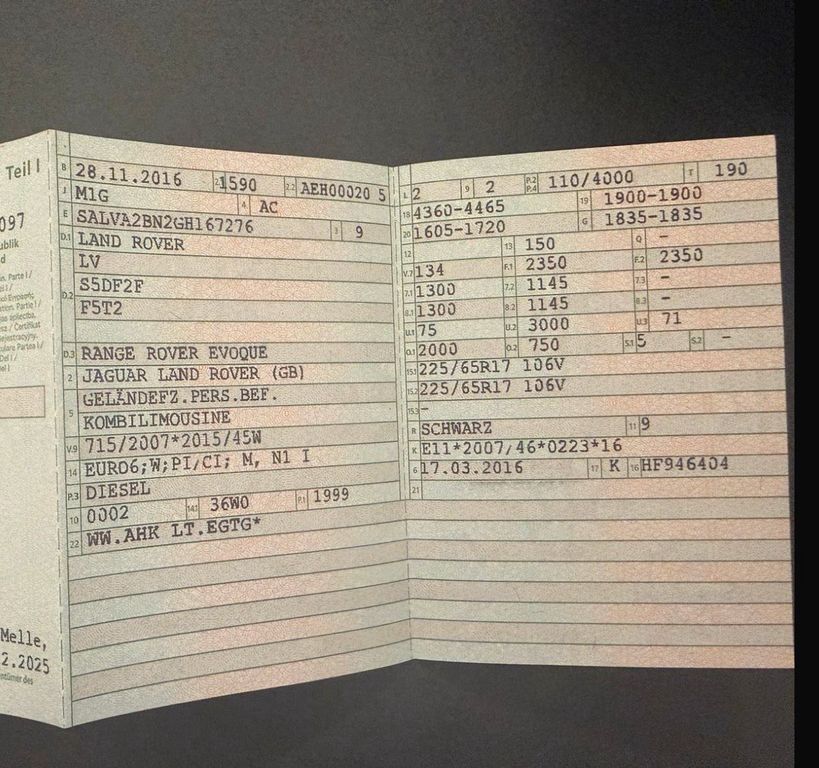 Teil I
097
ublik
d
Melle,
2.2025
B 28.11.2016 2.1 1590 2.2 AEH00020 5
J M1G 4 AC
E SALVA2BN2GH167276 3 9
D.1 LAND ROVER
D.2 LV
S5DF2F
F5T2
D.3 RANGE ROVER EVOQUE
2 JAGUAR LAND ROVER (GB)
5 GELÄNDEFZ.PERS.BEF.
KOMBILIMOUSINE
V.9 715/2007*2015/45W
14 EURO6;W;PI/CI; M, N1 I
P.3 DIESEL
10 0002 14.1 36W0 P.1 1999
22 WW.AHK LT.EGTG*
L 2 9 2 P.2 P.4 110/4000 T 190
18 4360-4465 19 1900-1900
20 1605-1720 G 1835-1835
12 13 150 Q -
V.7 134 F.1 2350 F.2 2350
7.1 1300 7.2 1145 7.3 -
8.1 1300 8.2 1145 8.3 -
U.1 75 U.2 3000 U.3 71
O.1 2000 O.2 750 S.1 5 S.2 -
15.1 225/65R17 106V
15.2 225/65R17 106V
15.3 -
R SCHWARZ 11 9
K E11*2007/46*0223*16
6 17.03.2016 17 K 16 HF946404
21